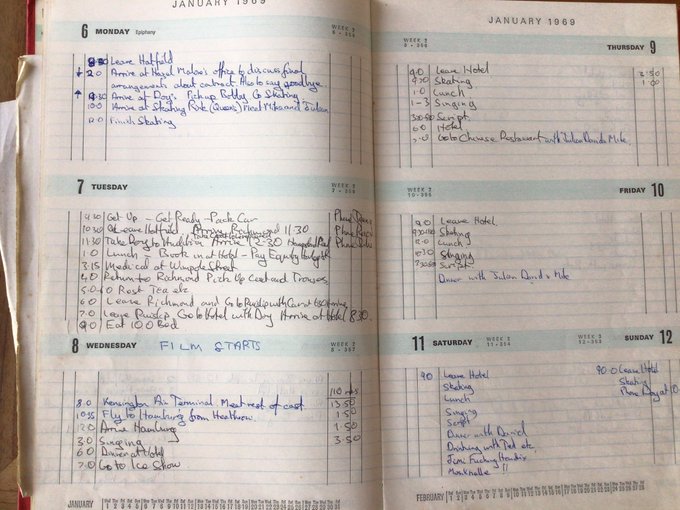 JANUARY 1969
6 MONDAY Epiphany WEEK 2
6 - 359
8 30 Leave Hatfield
2 0 Arrive at Hazel Malone's office to discuss final
arrangements about contract. Also to say goodbye.
9 30 Arrive at Doy's. Pick up Paddy Go to Skating
10 0 Arrive at Skating Rink (Queens) Meet Mike and Julian
12 0 Finish Skating
7 TUESDAY WEEK 2
7 - 358
9 30 Get Up - Get Ready - Pack Car
10 30 Leave Hatfield Arrive Richmond 11 30
11 30 Take Doy to Arrive 12 30
1 0 Lunch - Book in at Hotel - Pay Equity
3 15 Medical at Wimpole Street
4 0 Return to Richmond Pick Up Coat and Trousers
5 0 Rose Tea etc
6 0 Leave Richmond and Go to Ruislip with Car at 6 30
7 0 Leave Ruislip Go to Hotel with Doy Arrive at Hotel 8 30.
9 0 Eat 10 0 Bed
8 WEDNESDAY FILM STARTS WEEK 2
8 - 357
8 0 Kensington Air Terminal Meet rest of cast
10 55 Fly to Hamburg from Heathrow
12 0 Arrive Hamburg
3 0 Singing
6 0 Dinner at Hotel
7 0 Go to Ice Show
13 50
1 50
1 50
3 50
JANUARY
JANUARY 1969
WEEK 2
9 - 356 THURSDAY 9
9 0 Leave Hotel
9 30 Skating
1 0 Lunch
1 - 3 Singing
Script
6 0 Hotel
7 0 Go to Chinese Restaurant with Julian David Mike
2 50
1 00
WEEK 2
10 - 355 FRIDAY 10
9 0 Leave Hotel
Skating
12 0 Lunch
Singing
Script
Dinner with Julian David & Mike
11 SATURDAY WEEK 2
11 - 354
9 0 Leave Hotel
Skating
Lunch
Singing
Script
Dinner with David
Drinking with Ted etc.
Jimi Fucking Hendrix
!!
WEEK 2
12 - 353 SUNDAY 12
9 0 Leave Hotel
Skating
Phone Doy at 10
FEBRUARY